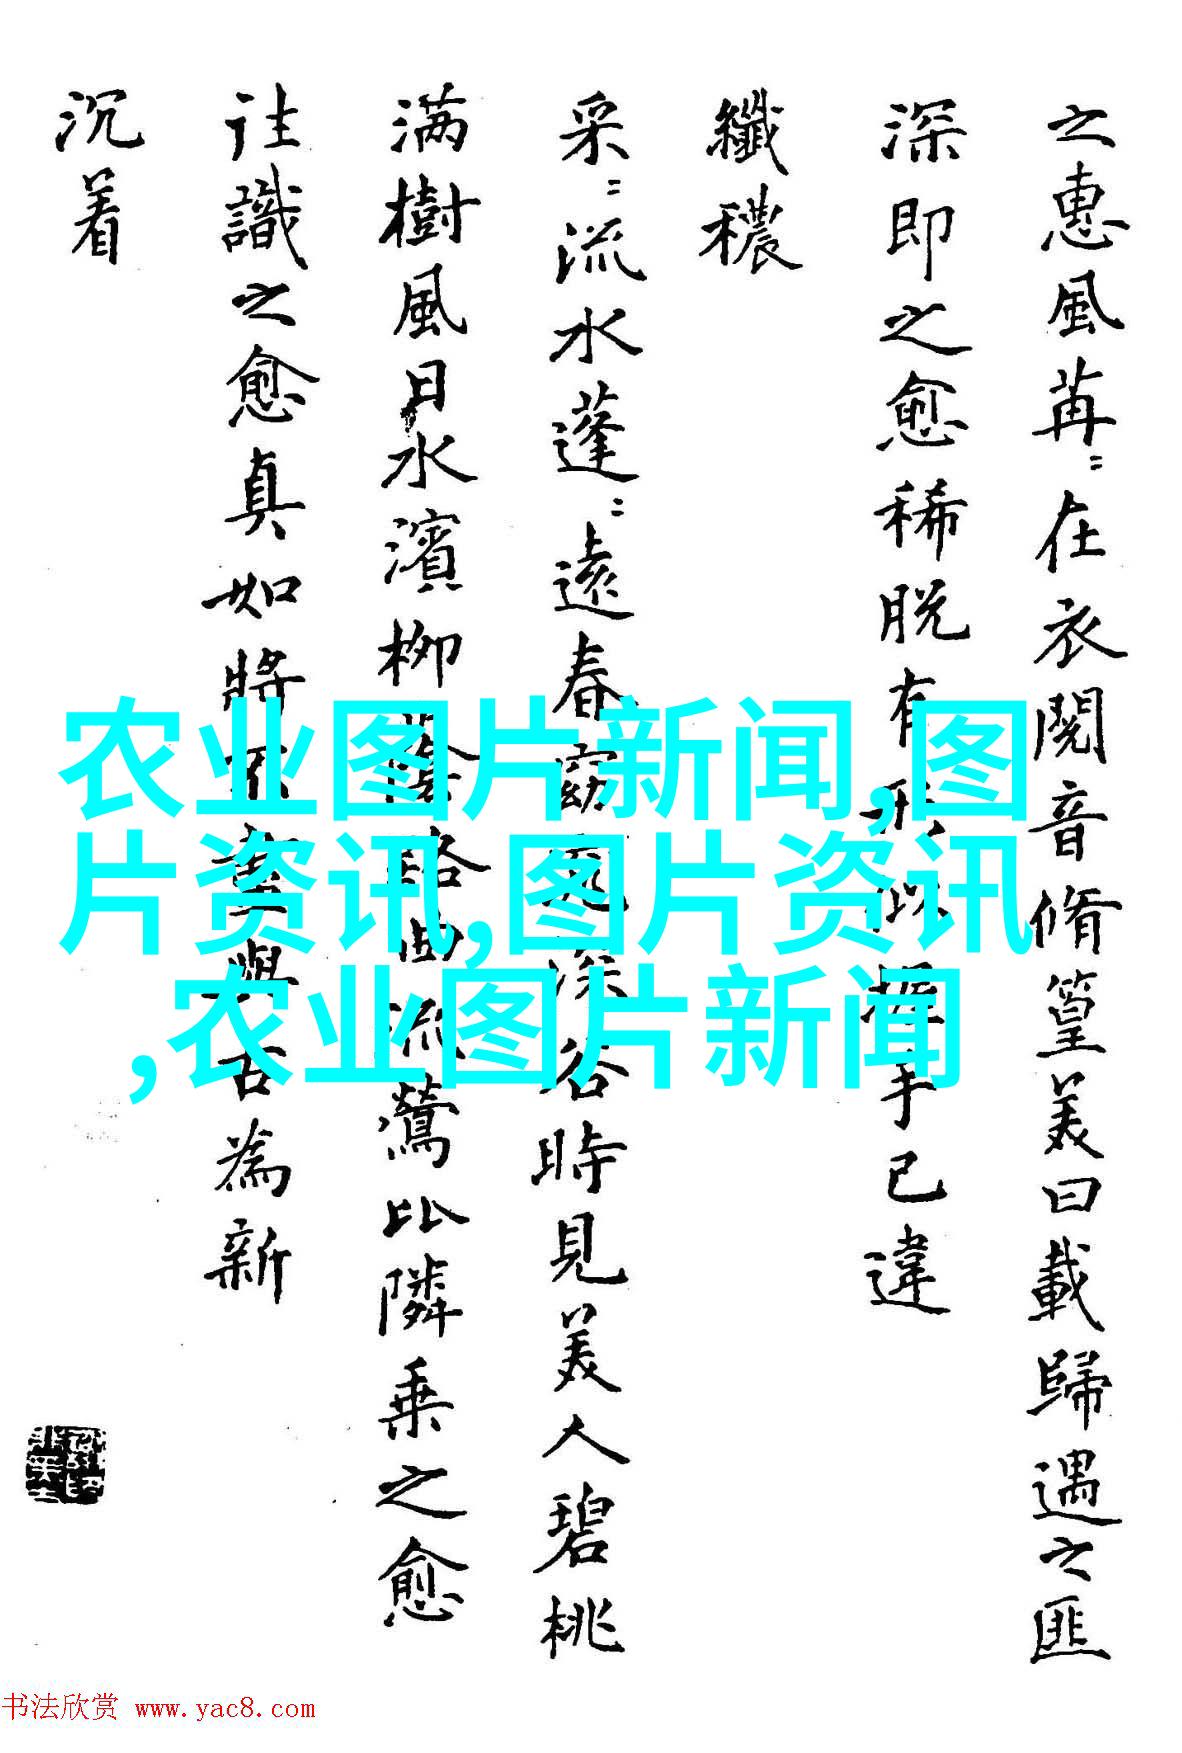 之惠風苒〻在衣閱音脩篁美曰載歸遇之匪
深即之愈稀脱有形似握手已違
纖穠
采〻流水蓬〻遠春窈窕深谷時見美人碧桃
满樹風日水濱柳陰路曲流鶯比隣乗之愈
往識之愈真如將不盡與古為新
沉着
农业图片新闻,图
片资讯,图片资讯
,农业图片新闻
书法欣赏 www.yac8.com